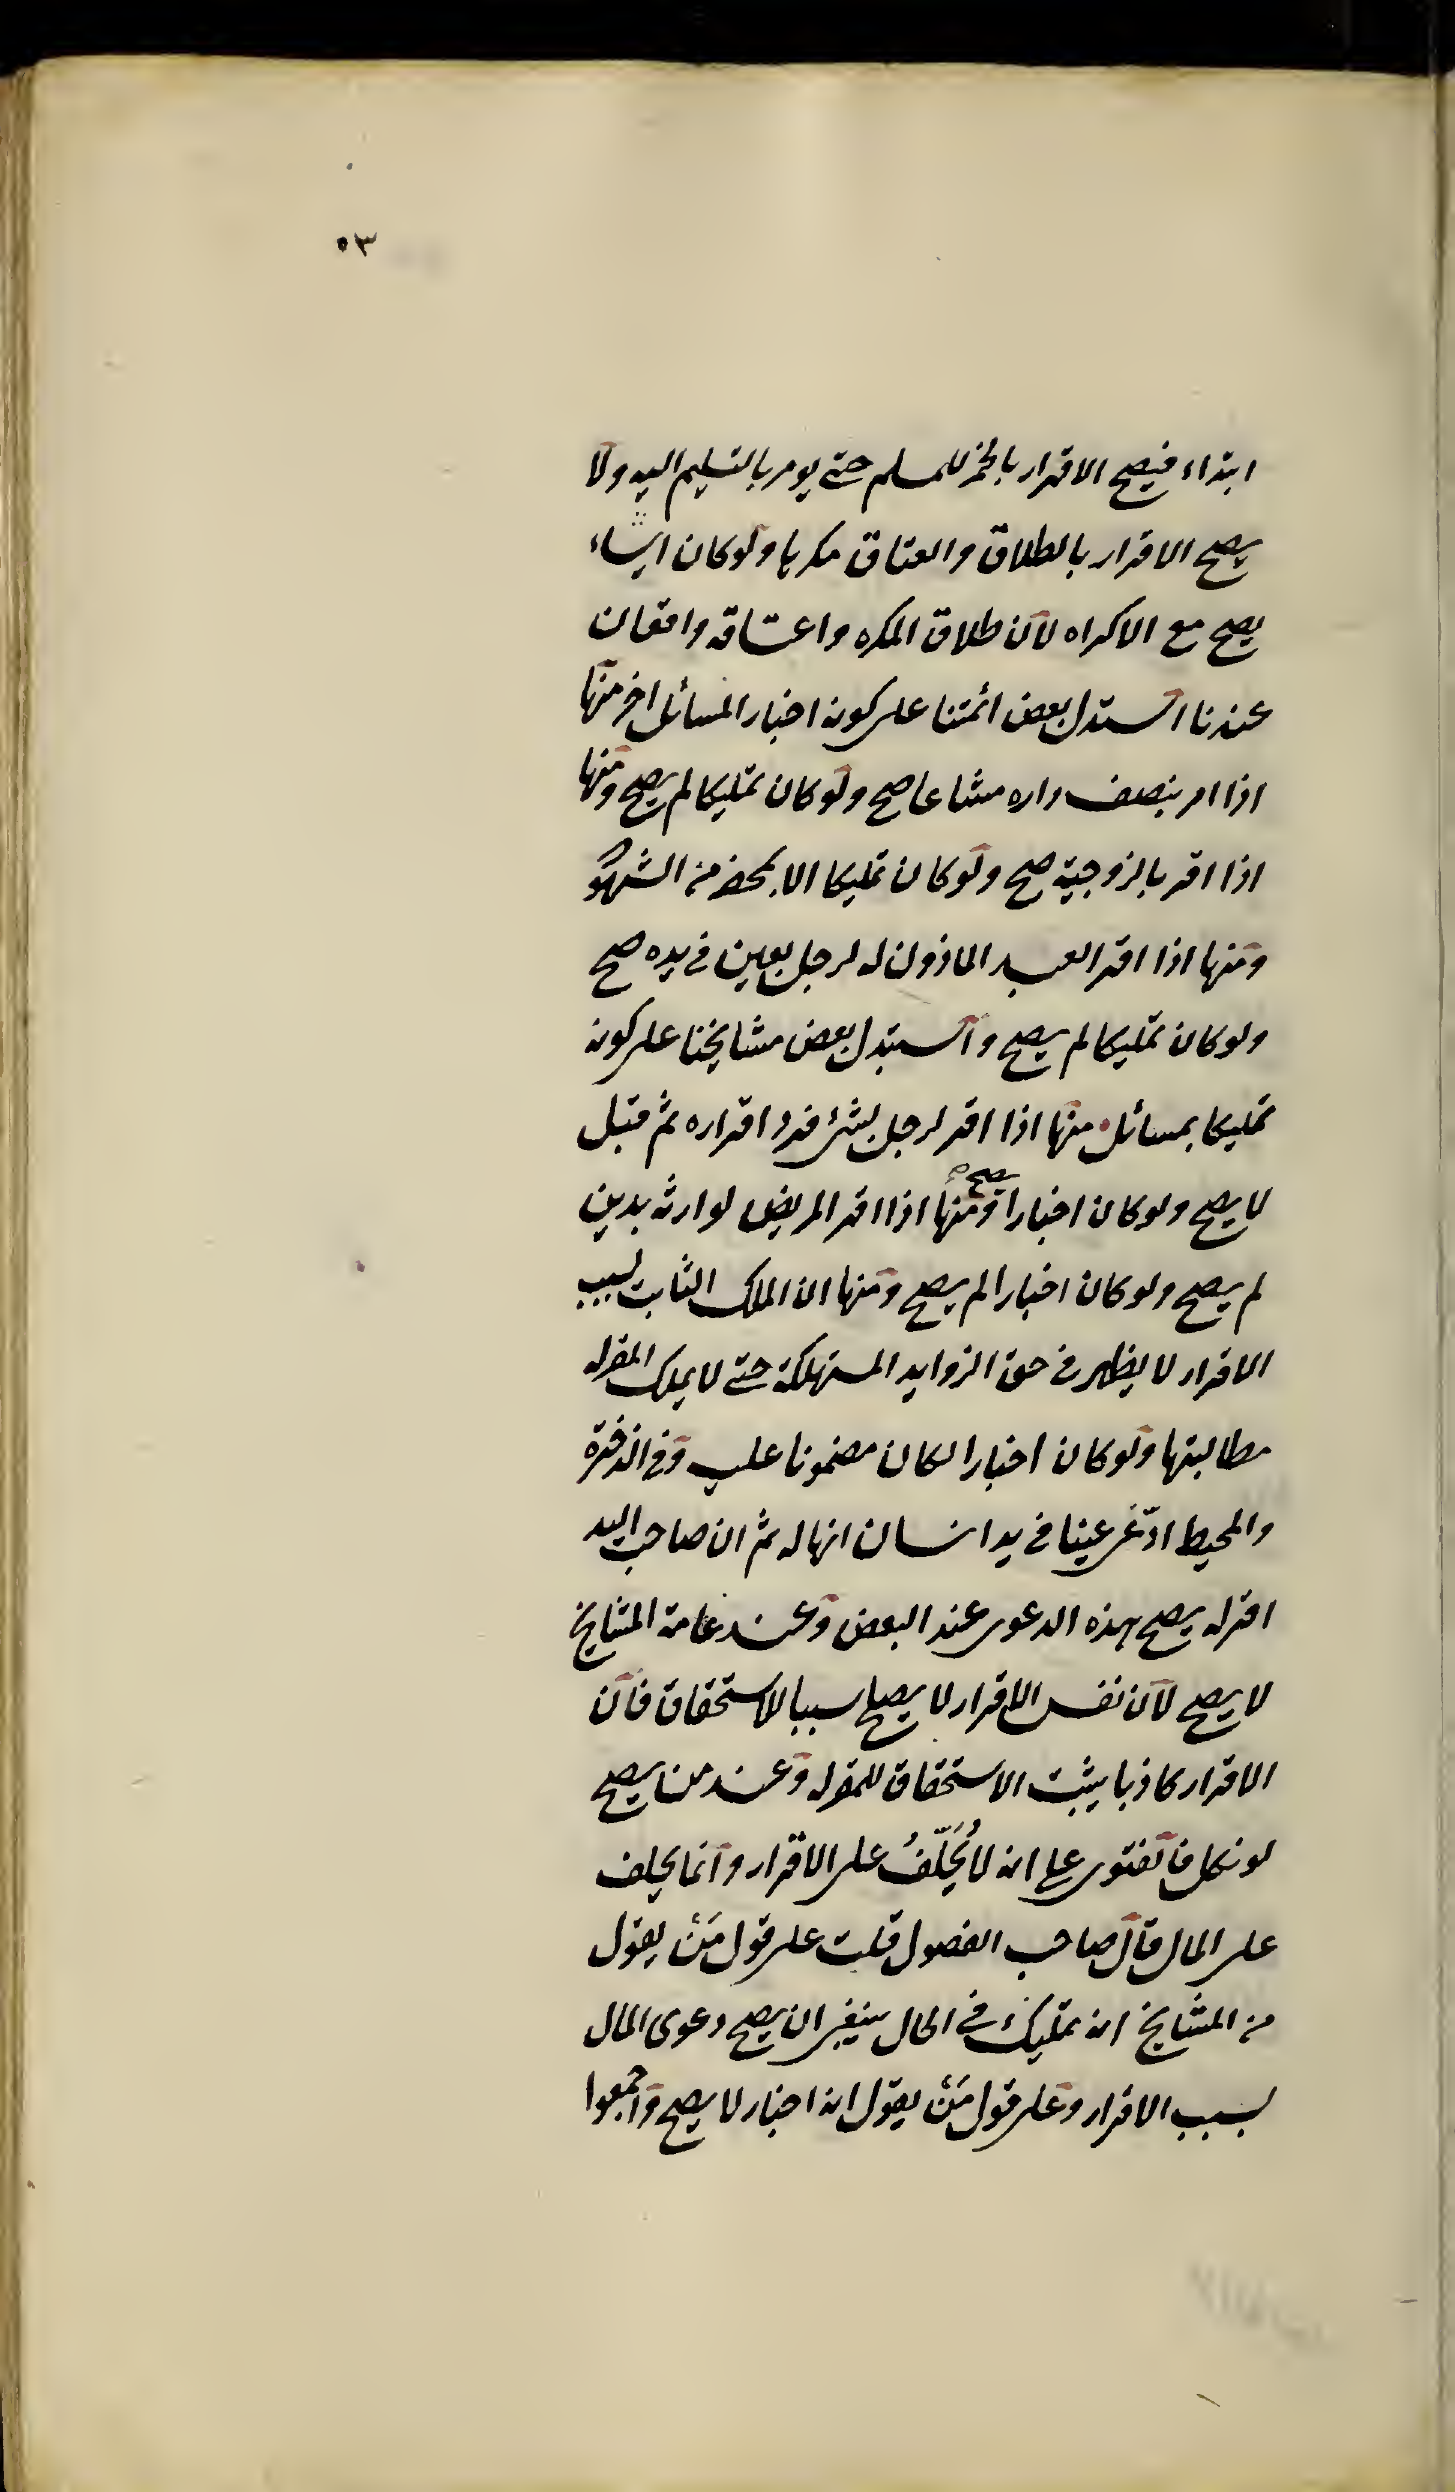 ٥٣
ابتداء فيصح الاقرار بالخمر للمسلم حتى يومر بالتسليم اليه ولا
يصح الاقرار بالطلاق والعتاق مكرها ولو كان انشاء
يصح مع الاكراه لان طلاق المكره واعتاقه واقعان
عندنا استدل بعض ائمتنا على كونه اخبارا لمسائل اخر منها
اذا اقر بنصف داره مشاعا صح ولو كان تمليكا لم يصح ومنها
اذا اقر بالزوجية صح ولو كان تمليكا الا بمحضر من الشهود
ومنها اذا اقر العبد الماذون له لرجل بعين في يده صح
ولو كان تمليكا لم يصح واستدل بعض مشايخنا على كونه
تمليكا بمسائل منها اذا اقر لرجل بشئ فرد اقراره ثم قبل
لا يصح ولو كان اخبارا صح ومنها اذا اقر المريض لوارثه بدين
لم يصح ولو كان اخبارا لم يصح ومنها ان الملك الثابت بسبب
الاقرار لا يظهر في حق الزوايد المستهلكة حتى لا يملك المقر له
مطالبتها ولو كان اخبارا لكان مضمونا عليه وفي الذخيرة
والمحيط ادّعى عينا في يد انسان انها له ثم ان صاحب اليد
اقر له يصح بهذه الدعوى عند البعض وعند عامة المشايخ
لا يصح لان نفس الاقرار لا يصلح سببا للاستحقاق فان
الاقرار كاذبا يثبت الاستحقاق للمقر له وعند من يصح
لو نكل فالفتوى على انه لا يُحَلَّفُ على الاقرار وانما يحلف
على المال قال صاحب الفصول قلت على قول مَنْ يقول
من المشايخ انه تمليك في الحال ينبغي ان يصح دعوى المال
بسبب الاقرار وعلى قول مَنْ يقول انه اخبار لا يصح واجمعوا